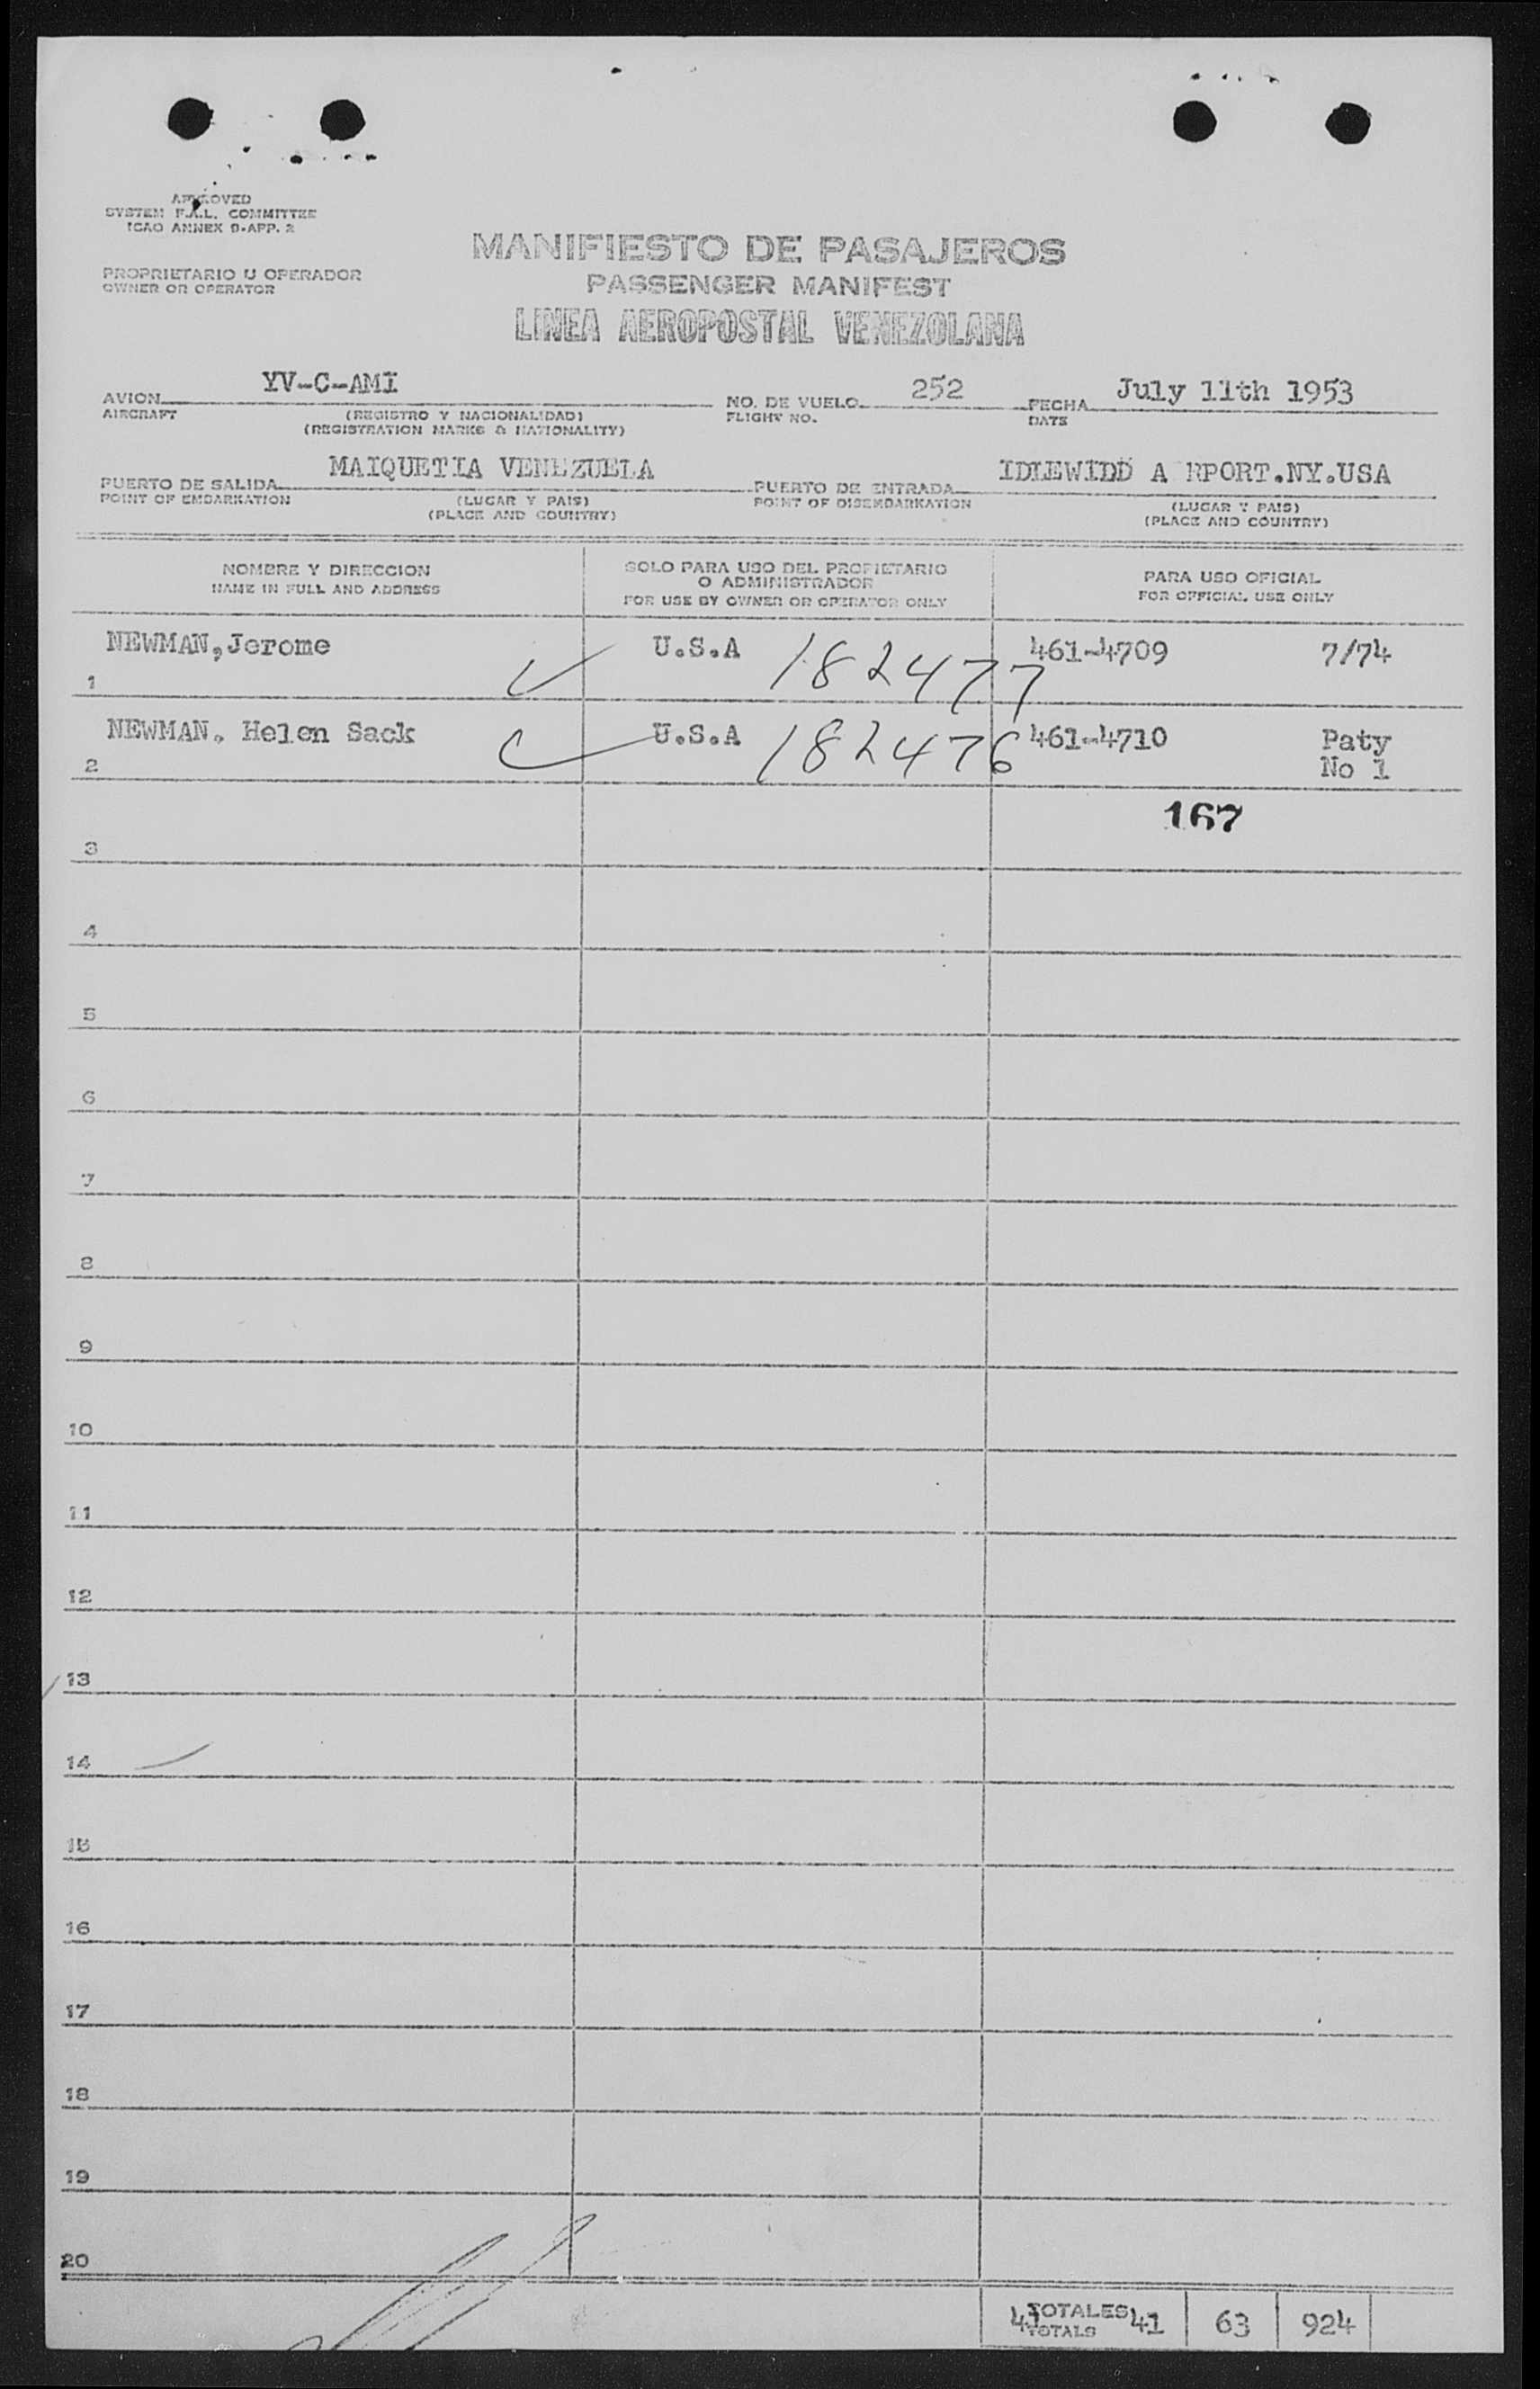 APPROVED
SYSTEM F.A.L. COMMITTEE
ICAO ANNEX 9-APP. 2
MANIFIESTO DE PASAJEROS
PROPRIETARIO U OPERADOR
OWNER OR OPERATOR
PASSENGER MANIFEST
LINEA AEROPOSTAL VENEZOLANA
AVION YV-C-AMI NO. DE VUELO 252 FECHA July 11th 1953
AIRCRAFT (REGISTRO Y NACIONALIDAD) FLIGHT NO. DATE
(REGISTRATION MARKS & NATIONALITY)
PUERTO DE SALIDA MAIQUETIA VENEZUELA PUERTO DE ENTRADA IDLEWIDD A RPORT.NY.USA
POINT OF EMBARKATION (LUGAR Y PAIS) POINT OF DISEMBARKATION (LUGAR Y PAIS)
(PLACE AND COUNTRY) (PLACE AND COUNTRY)
NOMBRE Y DIRECCION SOLO PARA USO DEL PROPIETARIO PARA USO OFICIAL
O ADMINISTRADOR
NAME IN FULL AND ADDRESS FOR USE BY OWNER OR OPERATOR ONLY FOR OFFICIAL USE ONLY
NEWMAN,Jerome U.S.A 182477 461-4709 7/74
1
NEWMAN, Helen Sack U.S.A 182476 461-4710 Paty
2 No 1
167
3
4
5
6
7
8
9
10
11
12
13
14
15
16
17
18
19
20
TOTALES 41 63 924
TOTALS